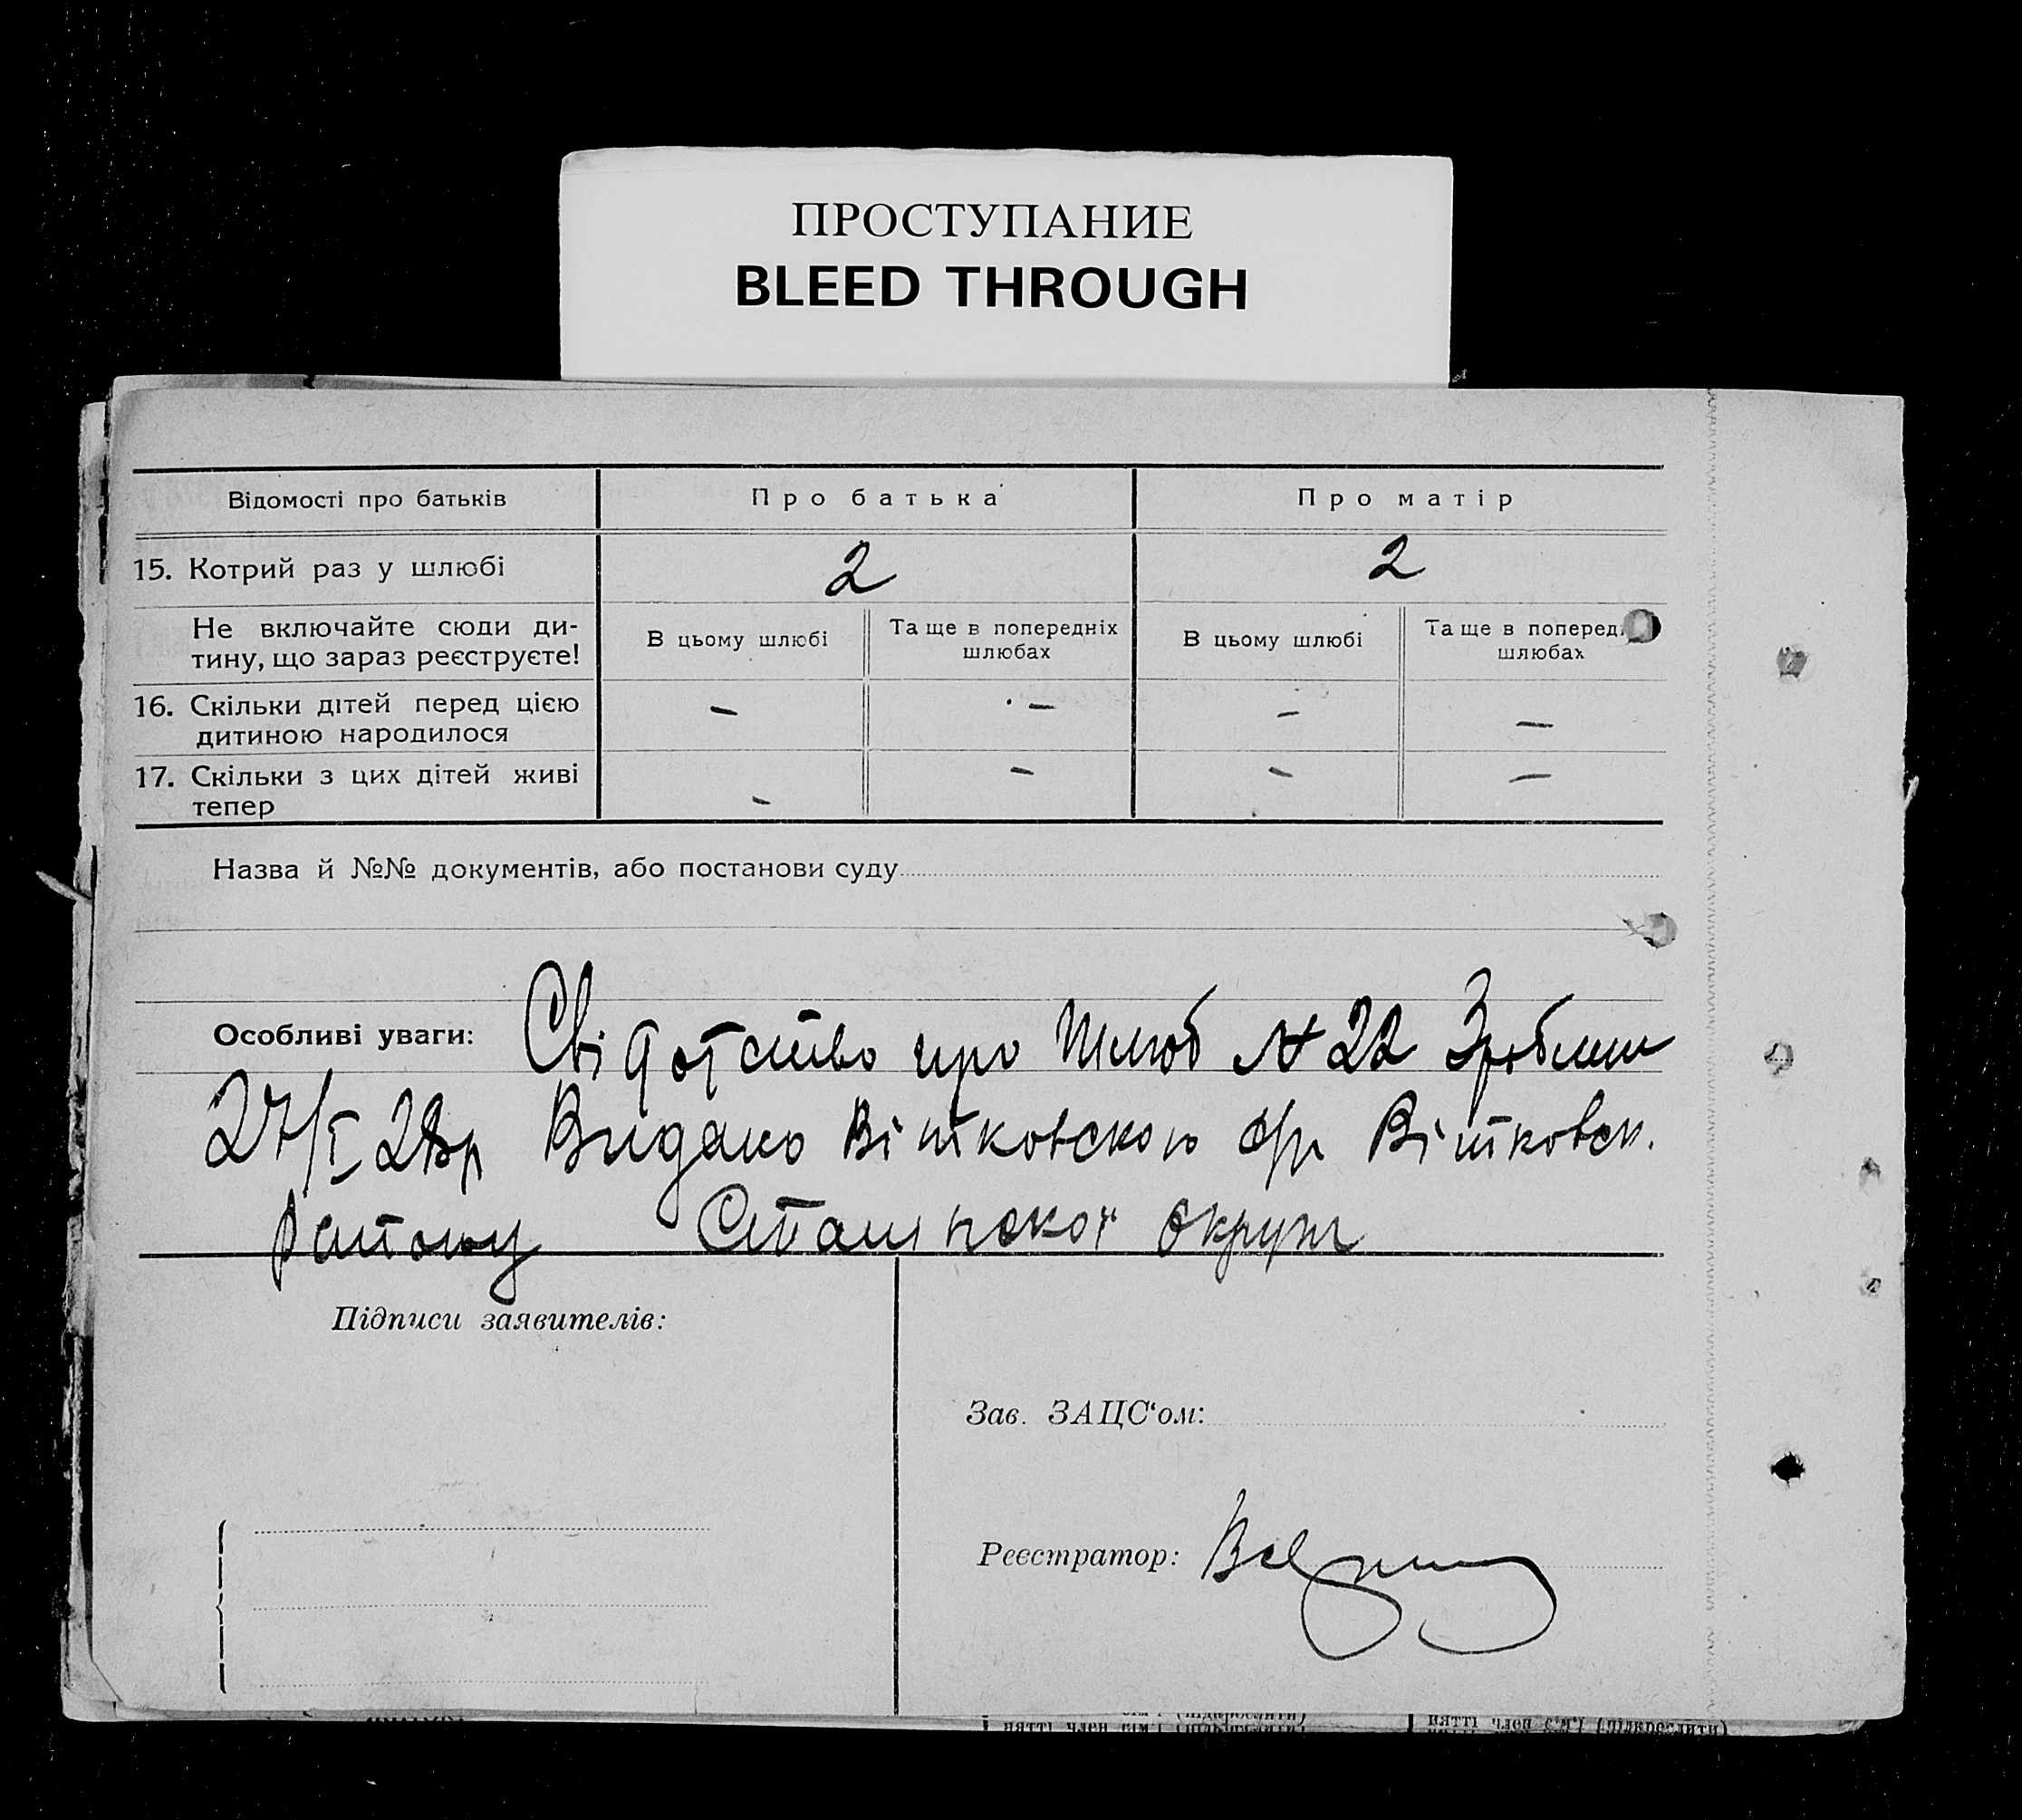 ПРОСТУПАНИЕ
BLEED THROUGH
Відомості про батьків
Про батька
Про матір
15. Котрий раз у шлюбі
2
2
Не включайте сюди ди-
тину, що зараз реєструєте!
В цьому шлюбі
Та ще в попередніх
шлюбах
В цьому шлюбі
Та ще в поперед
шлюбах
16. Скільки дітей перед цією
дитиною народилося
— — — —
17. Скільки з цих дітей живі
тепер
— — — —
Назва й №№ документів, або постанови суду
Особливі уваги: Свідотство про Шлюб № 22
27/I 28р Видано с/р
округи
Підписи заявителів:
Зав. ЗАЦС‘ом:
Реєстратор:
нятті член сім'ї (підкреслити)
нятті член сім'ї (підкреслити)